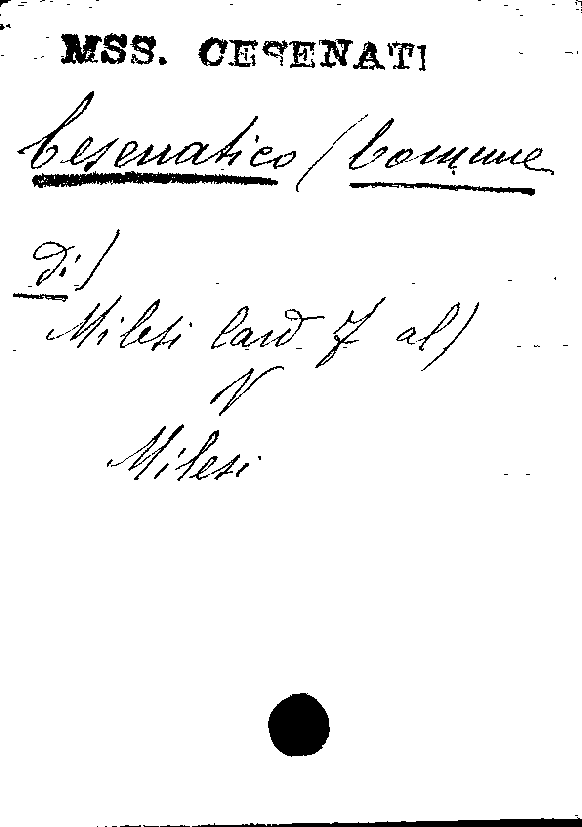 MSS. CESENATI
Cesenatico (Comune
di)
Milesi Card. F al)
V
Milesi